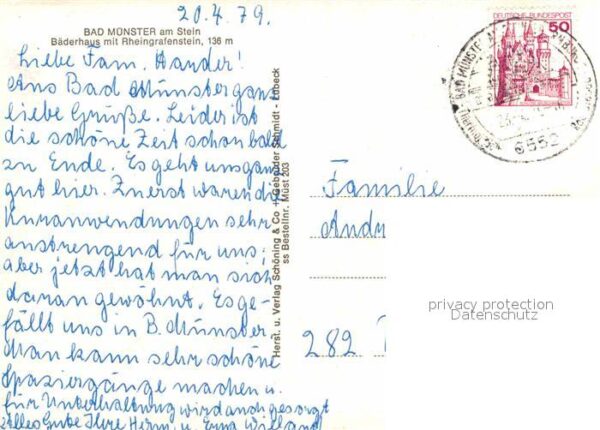 20.4.79.
BAD MÜNSTER am Stein
Bäderhaus mit Rheingrafenstein, 136 m
Liebe Fam. Hander!
Aus Bad Münster ganz
liebe Grüße. Leider ist
die schöne Zeit schon bald
zu Ende. Es geht uns ganz
gut hier. Zuerst waren die
Kuranwendungen sehr
anstrengend für uns,
aber jetzt hat man sich
daran gewöhnt. Es ge-
fällt uns in B. Münster
Man kann sehr schöne
Spaziergänge machen u.
für Unterhaltung wird auch gesorgt
Alles Gute Ihre Herm. u. Erna Wieland
Herst. u. Verlag Schöning & Co + Gebrüder Schmidt - Lübeck
ss Bestellnr. Müst 203
DEUTSCHE BUNDESPOST
50
BAD MÜNSTER
6552
Familie
Andr
282
privacy protection
Datenschutz